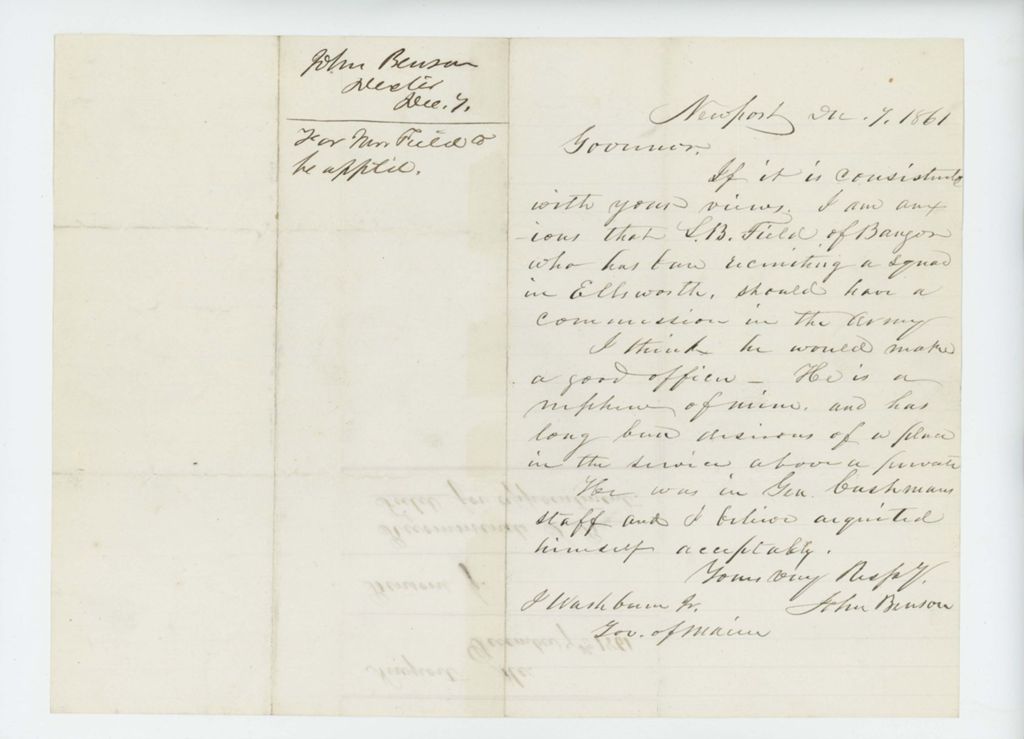 John Benson
Dexter
Dec. 7.
For Mr. Field to
be appt'd.
Newport Dec. 7. 1861
Governor.
If it is consistent
with your views. I am anx
-ious that L.B. Field of Bangor
who has been recruiting a squad
in Ellsworth, should have a
commission in the Army
I think he would make
a good officer - He is a
nephew of mine. and has
long been desirous of a place
in the service above a private
He was in Gen. Cushmans
staff and I believe acquited
himself acceptably.
Yours very Respy.
John Benson
I Washburn Jr.
Gov. of Maine
Newport Me.
December 7th 1861
Benson J.
Recommends
Field for appointment